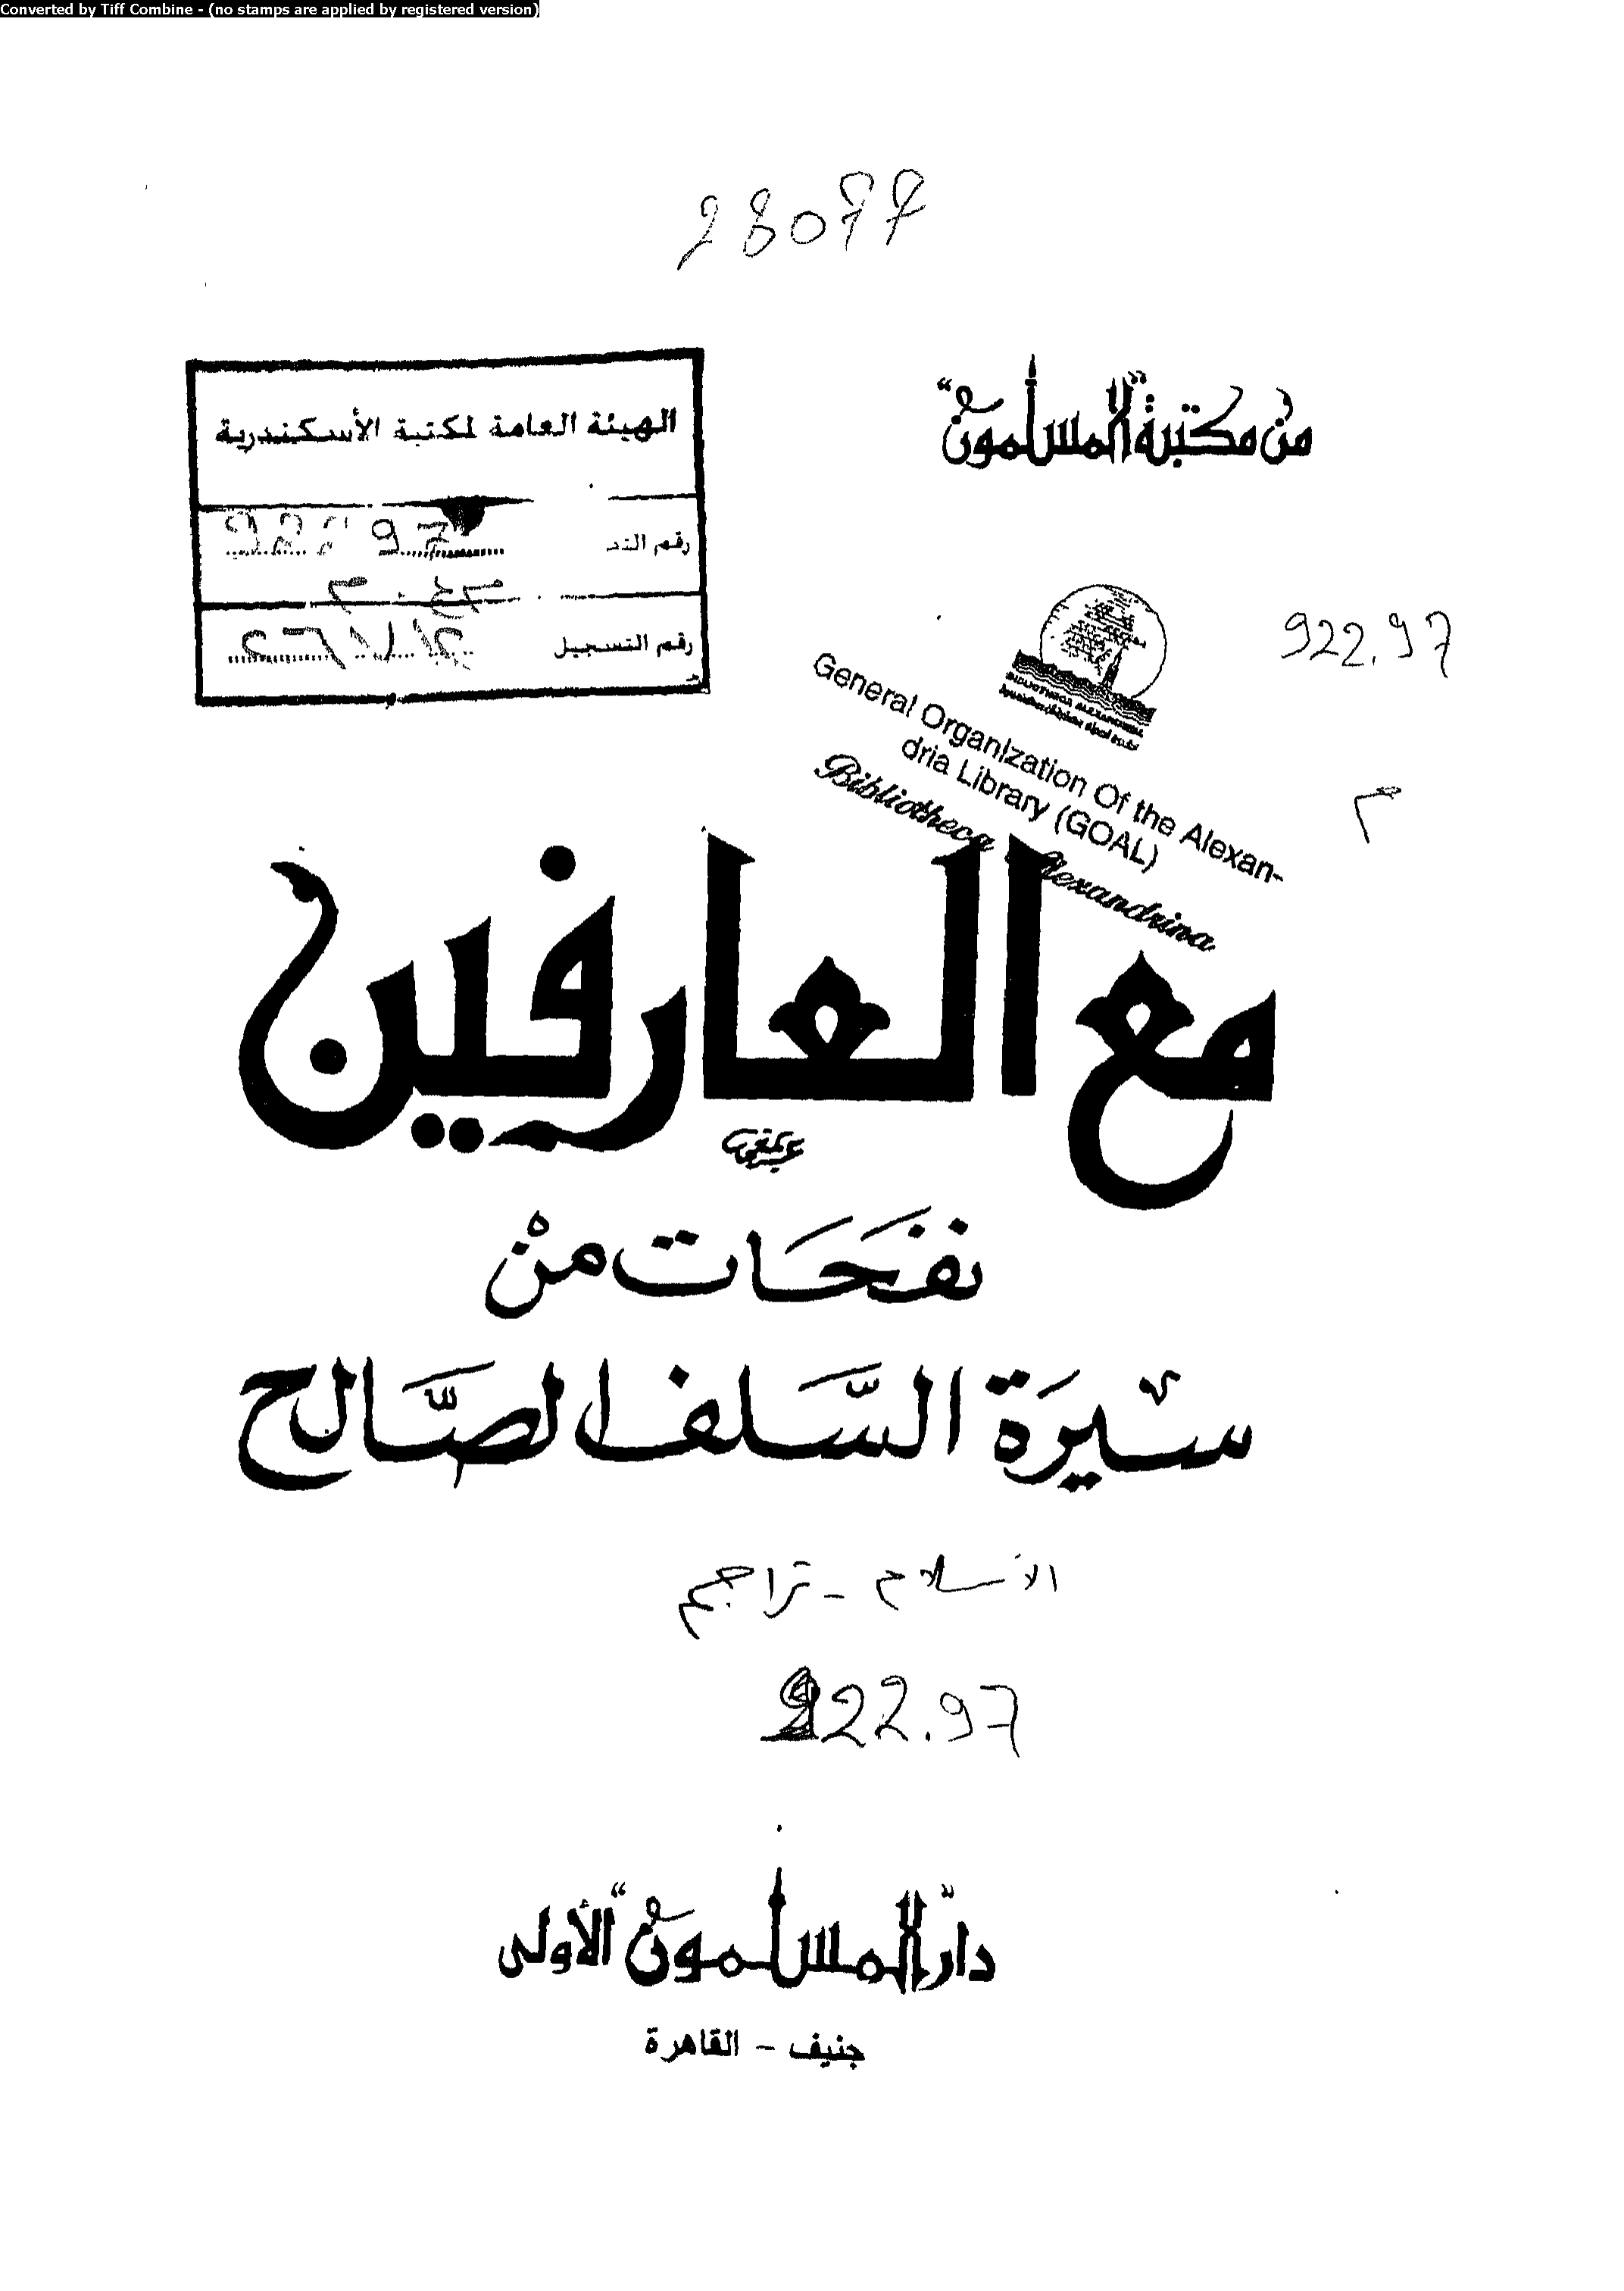 Converted by Tiff Combine - (no stamps are applied by registered version)
من مكتبة "المسلمون"
الهيئة العامة لمكتبة الأسكندرية
رقم التد 922.97
رقم التسجيل
922.97
م
BIBLIOTHECA ALEXANDRINA
General Organization Of the Alexan-
dria Library (GOAL)
Bibliotheca Alexandrina
مع العارفين
نفَحَات منْ
سيرَة السَّلف الصَّالح
الاسلام - تراجم
922.97
دار "المسلمون" الأولى
جنيف - القاهرة